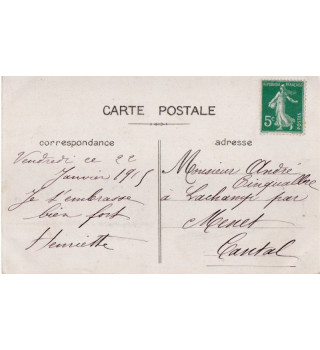 RÉPUBLIQUE FRANÇAISE
5c
POSTES
CARTE POSTALE
correspondance
Vendredi ce 22
Janvier 1915
Je t'embrasse
bien fort
Henriette
adresse
Monsieur André
à Lachamp par
Menet
Cantal